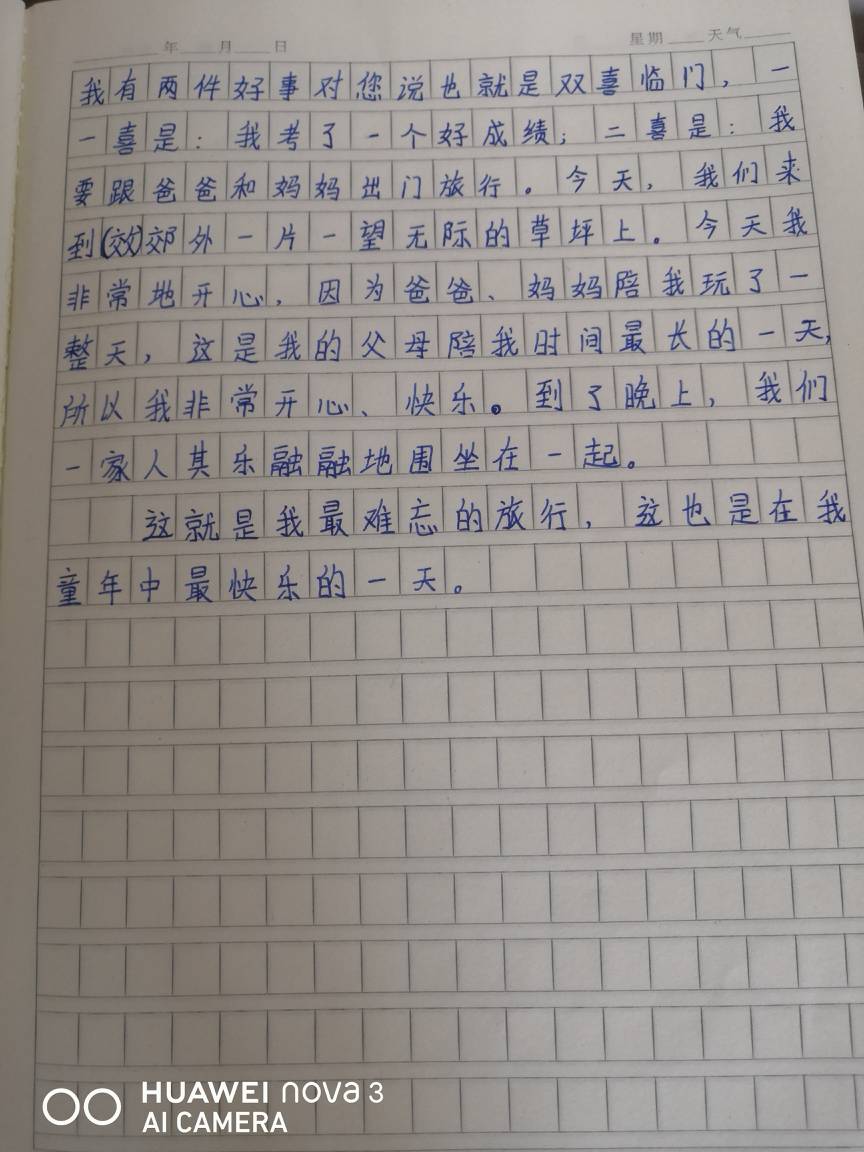 年 月 日 星期 天气
我有两件好事对您说也就是双喜临门，一
一喜是：我考了一个好成绩；二喜是：我
要跟爸爸和妈妈出门旅行。今天，我们来
到(效)郊外一片一望无际的草坪上。今天我
非常地开心，因为爸爸、妈妈陪我玩了一
整天，这是我的父母陪我时间最长的一天，
所以我非常开心、快乐。到了晚上，我们
一家人其乐融融地围坐在一起。
这就是我最难忘的旅行，这也是在我
童年中最快乐的一天。
HUAWEI nova 3
AI CAMERA